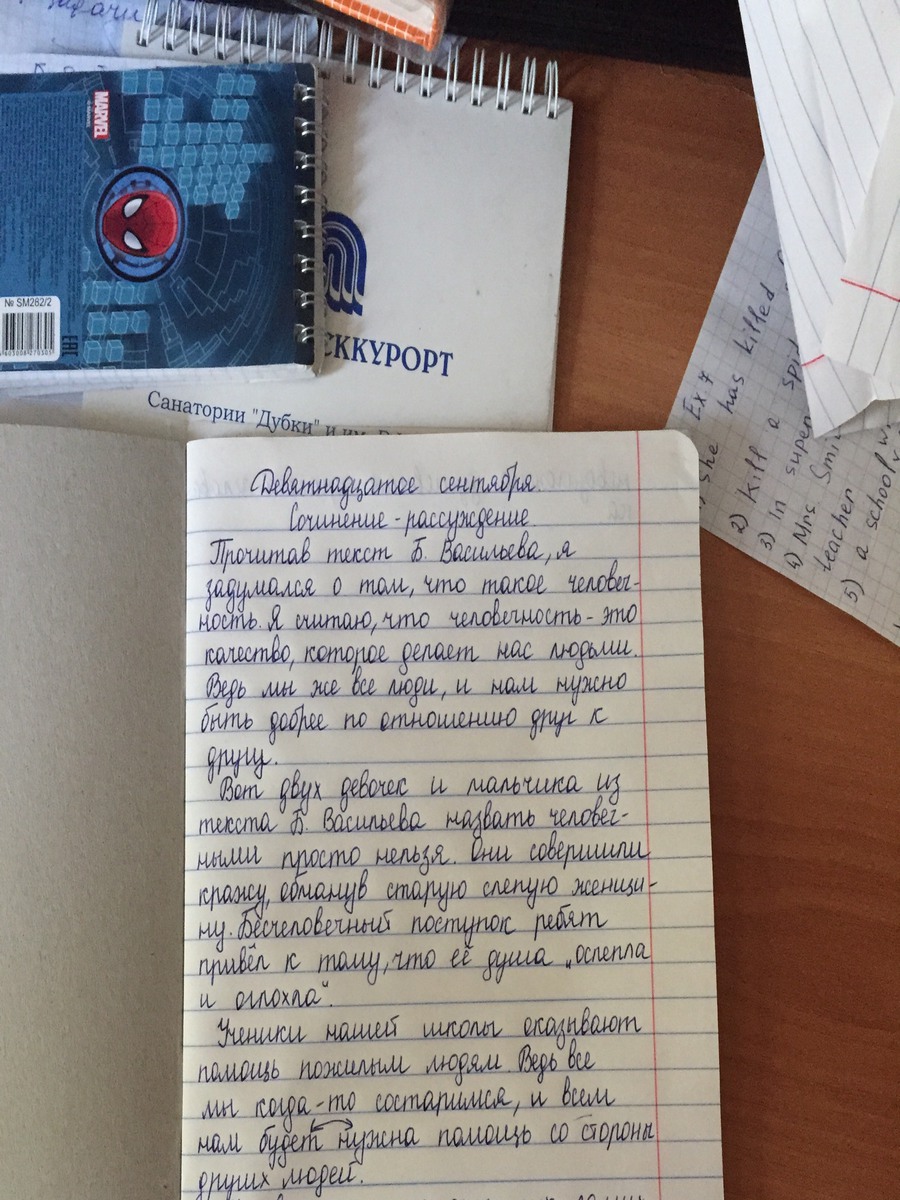 задачи
MARVEL
№ SM282/2
ЕАС
СККУРОРТ
Санатории "Дубки" и им.
Ex. 7
she has killed
2) Kill a
3) In
4) Mrs. Smi
teacher
5) a school
Девятнадцатое сентября.
Сочинение-рассуждение
Прочитав текст Б. Васильева, я
задумался о том, что такое человеч-
ность. Я считаю, что человечность - это
качество, которое делает нас людьми.
Ведь мы же все люди, и нам нужно
быть добрее по отношению друг к
другу.
Вот двух девочек и мальчика из
текста Б. Васильева назвать человеч-
ными просто нельзя. Они совершили
кражу, обманув старую слепую женщи-
ну. Бесчеловечный поступок ребят
привёл к тому, что её душа „ослепла
и оглохла“.
Ученики нашей школы оказывают
помощь пожилым людям. Ведь все
мы когда-то состаримся, и всем
нам будет нужна помощь со стороны
других людей.